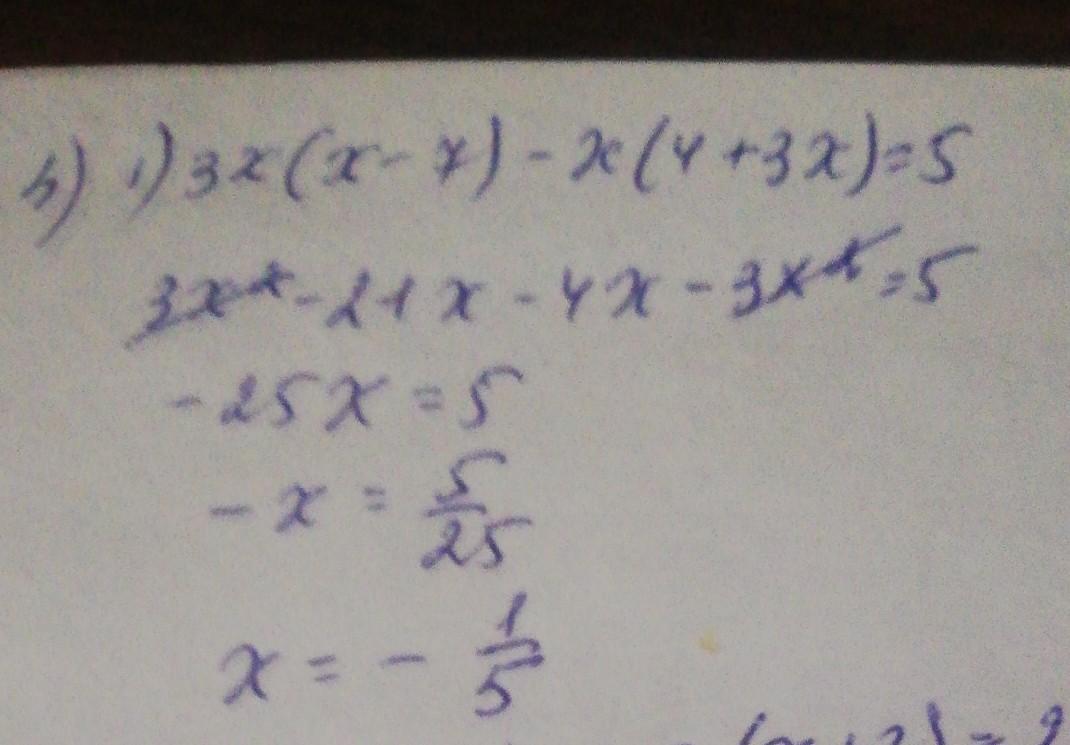 5) 1) 3x(x-7) - x(4+3x)=5
3x²-21x-4x-3x²=5
-25x=5
-x=5/25
x=-1/5